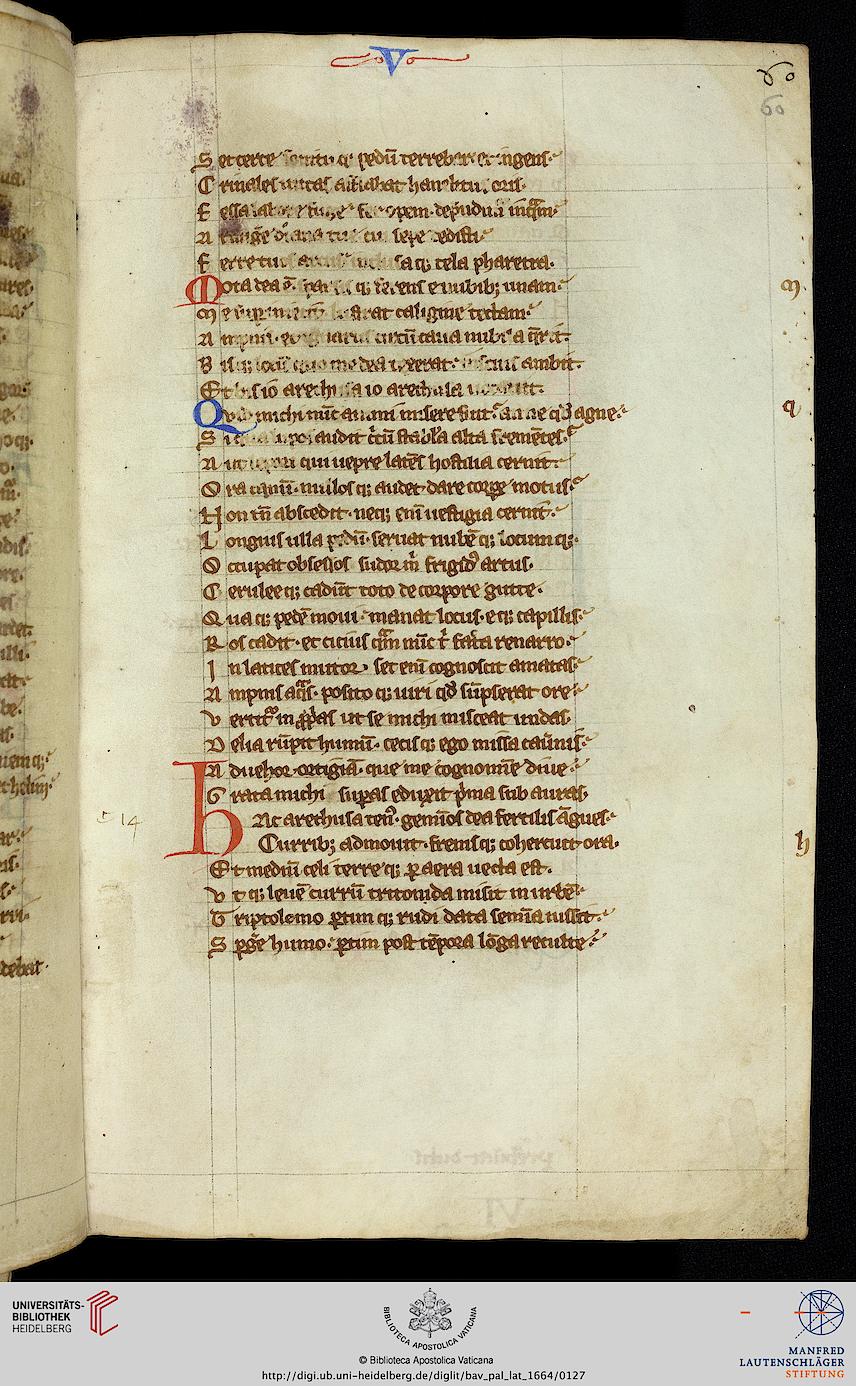 V
60
60
S et certe sonitu q; pedū terrebar et ingens
C rinales uittas afflabat oris
F essa labore fuge fer opem dep̄ndim̄ inq̄m
A rmigē diana tue cui sepe dedisti
F erre tuos arcus sa q; tela pharetra
M ota dea ē spariss q; ferens e nubib; unam
m e sup caligine tectam
A mpnis et ignarus circū caua nubila q̄rit
B is q; locū quo me dea texerat inscius ambit
Et bis io arethusa io arethusa uocauit
Q uid michi nūc animi misere fuit an ne qd̄ agne
S i qua lupos audit circū stabula alta frementes
A ut lepori qui uepre latēs hostilia cernit
O ra canū nullos q; audet dare corpe motus
N on tn̄ abscedit neq; enī uestigia cernit
L ongius ulla pedū seruat nubē q; locum q;
O ccupat obsessos sudor m̄ frigid artus
C erulee q; cadūt toto de corpore gutte
Q ua q; pedē moui manat locus e q; capillis
R os cadit et citius q̄m nūc t̄ facta renarro
I n latices mutor set enī cognoscit amatas
A mpnis aq̄s posito q; uiri qd̄ sūpserat ore
V ertit in pp̄as ut se michi misceat undas
D elia rūpit humū cecis q; ego missa cauernis
A duehor ortigiā que me cognomīe diue
G rata michi supas eduxit p̄ma sub auras
h Ac arethusa ten gemīos dea fertilis āgues
Curribz admouit frenis q; cohercuit ora
Et mediū celi terre q; p aera uecta est
V t q; leuē currū tritonida misit in urbē
T riptolomo ptim q; rudi data semīa iussit
S pgē humo ptim post tēpora lōga reculte
m
q
h
14
UNIVERSITÄTS-
BIBLIOTHEK
HEIDELBERG
BIBLIOTECA APOSTOLICA VATICANA
© Biblioteca Apostolica Vaticana
http://digi.ub.uni-heidelberg.de/diglit/bav_pal_lat_1664/0127
MANFRED
LAUTENSCHLÄGER
STIFTUNG